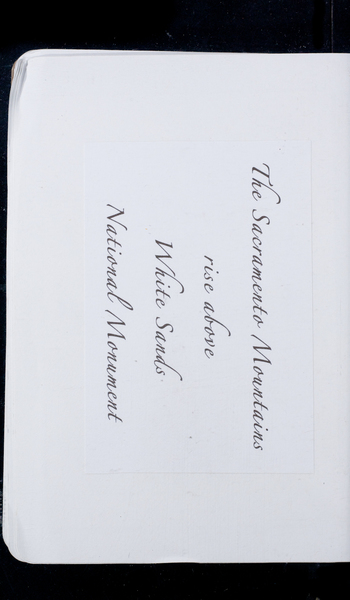 The Sacramento Mountains
rise above
White Sands
National Monument